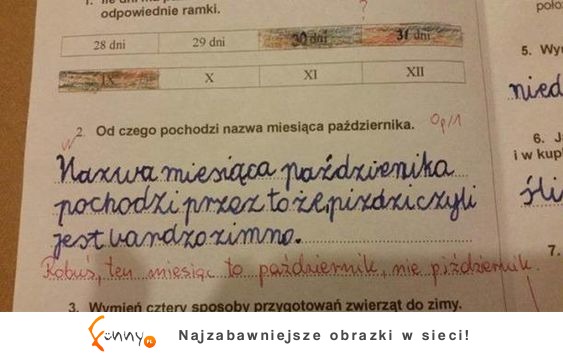 odpowiednie ramki.
?
28 dni 29 dni 30 dni 31 dni
IX X XI XII
2. Od czego pochodzi nazwa miesiąca października.
0p/1
Nazwa miesiąca października
pochodzi przez to że piździ czyli
jest bardzo zimno.
Kobuś, ten miesiąc to październik, nie piździernik.
3. Wymień cztery sposoby przygotowań zwierząt do zimy.
5.
6.
i w kup
7.
funny.pl
Najzabawniejsze obrazki w sieci!